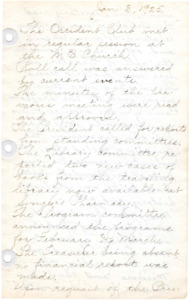 Jan 3, 1925.
The Occident Club met
in regular session at
the M. B. Church.
Roll call was answered
by current events.
The minutes of the pre-
vious meeting were read
and approved.
The President called for reports
from standing committees.
Library committee re-
ported two new cases of
books from the traveling
library now available at
Pharmacy.
The program committee
announced the programs
for February & March.
The Treasurer being absent
no financial report was
made.
Upon request of the Pres-